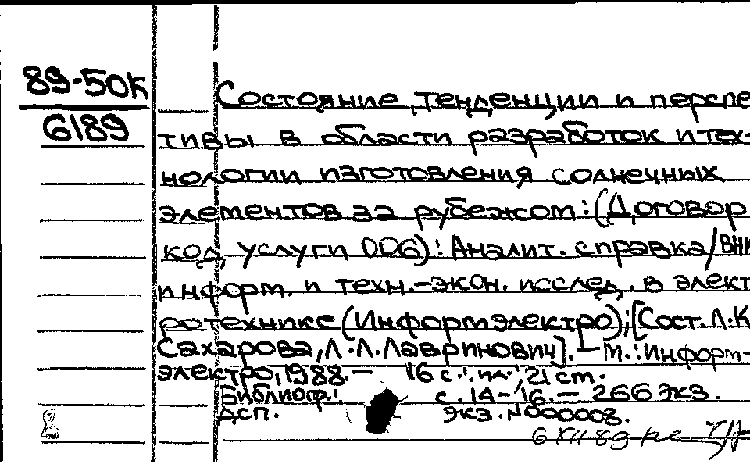 89-50К
6189
Состояние, тенденции и перспе
тивы в области разработок и тех-
нологии изготовления солнечных
элементов за рубежом: (Договор
код услуги 006): Аналит. справка/ВНИ
информ. и техн.-экон. исслед. в элект
ротехнике (Информэлектро); [Сост. Л.К
Сахарова, Л.Л. Лавринович]. - М.: Информ-
электро, 1988. - 16 с.: ил., 21 см.
Библиогр.: с. 14-16. - 266 экз.
ДСП. Экз. N000008.